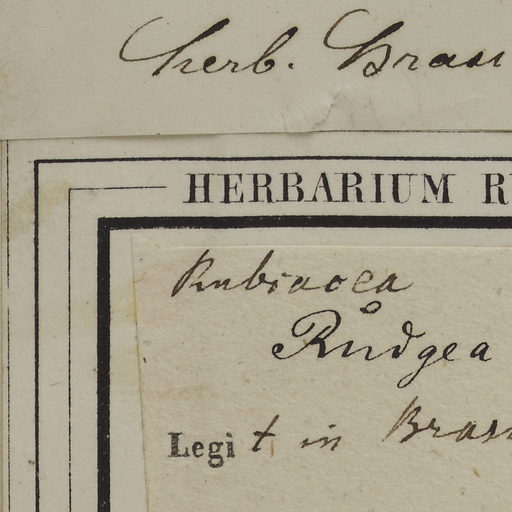 herb. Bras
HERBARIUM R
Rubiacea
Rudgea
Legit in Bras